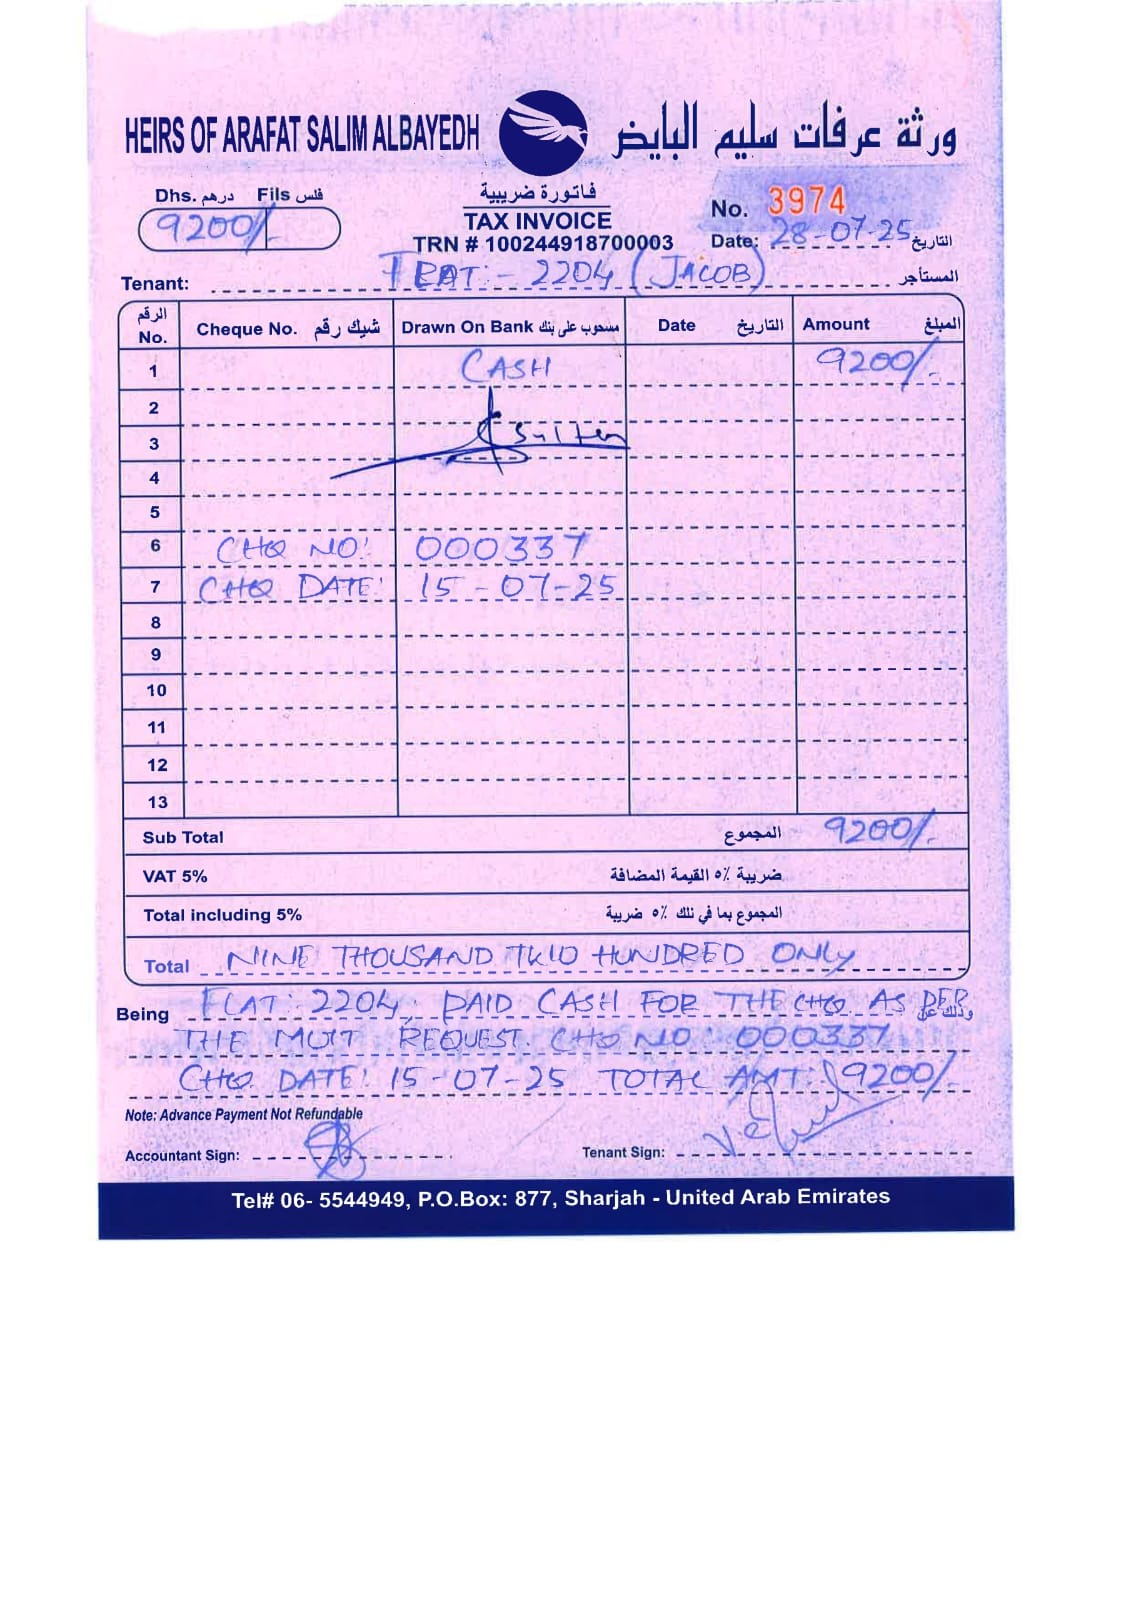 HEIRS OF ARAFAT SALIM ALBAYEDH ورثة عرفات سليم البايض
Dhs. درهم Fils فلس
9200/-
فاتورة ضريبية
TAX INVOICE
TRN # 100244918700003
No. 3974
Date: 28-07-25 التاريخ
Tenant: FLAT:- 2204 (JACOB) المستأجر
الرقم No. Cheque No. شيك رقم Drawn On Bank مسحوب على بنك Date التاريخ Amount المبلغ
1 CASH 9200/-
2
3 Sultan
4
5
6 CHQ NO: 000337
7 CHQ DATE: 15-07-25
8
9
10
11
12
13
Sub Total المجموع 9200/-
VAT 5% ضريبة ٥٪ القيمة المضافة
Total including 5% المجموع بما في ذلك ٥٪ ضريبة
Total NINE THOUSAND TWO HUNDRED ONLY
Being FLAT: 2204, PAID CASH FOR THE CHQ AS PER وذلك عن
THE REQUEST. CHQ NO: 000337
CHQ. DATE: 15-07-25 TOTAL AMT: 9200/-
Note: Advance Payment Not Refundable
Accountant Sign: Tenant Sign:
Tel# 06- 5544949, P.O.Box: 877, Sharjah - United Arab Emirates